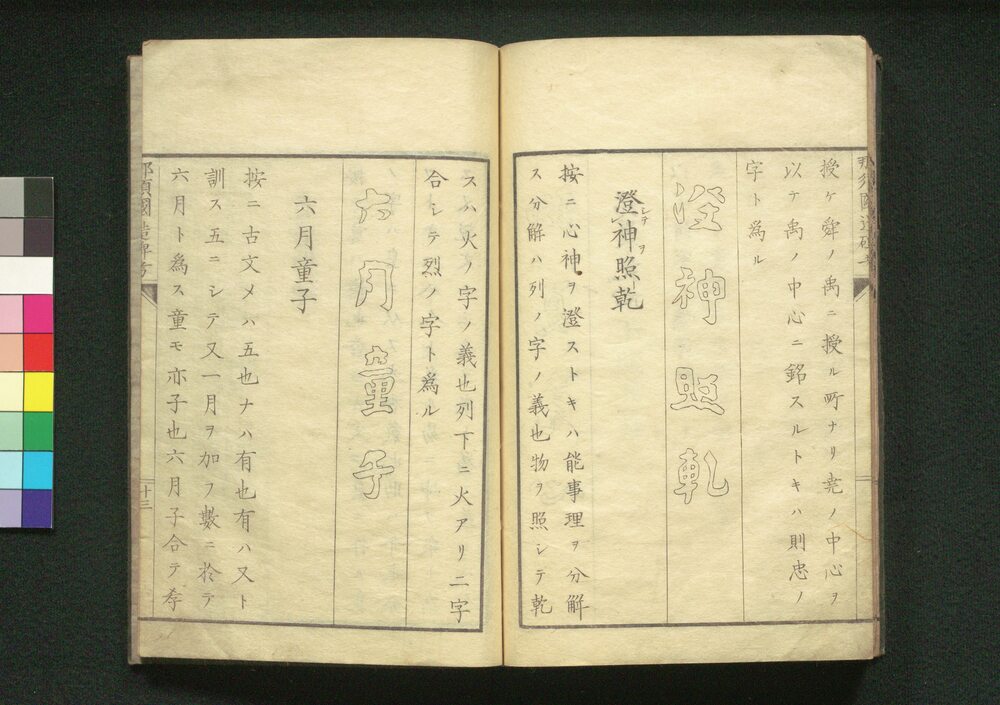 授ケ舜ノ禹ニ授ル町ナリ尭ノ中心ヲ
以テ禹ノ中心ニ銘スルトキハ則忠ノ
字ト為ル
澄神照乾
澄シテ神ヲ照乾
按ニ心神ヲ澄ストキハ能事理ヲ分解
ス分解ハ列ノ字ノ義也物ヲ照シテ乾
スハ火ノ字ノ義也列下ニ火アリ二字
合シテ烈ノ字ト為ル
六月童子
六月童子
按ニ古文メハ五也ナハ有也有ハ又ト
訓ス五ニシテ又一月ヲ加フ數ニ於テ
六月ト為ス童モ亦子也六月子合テ孝
那須國造碑考
十三